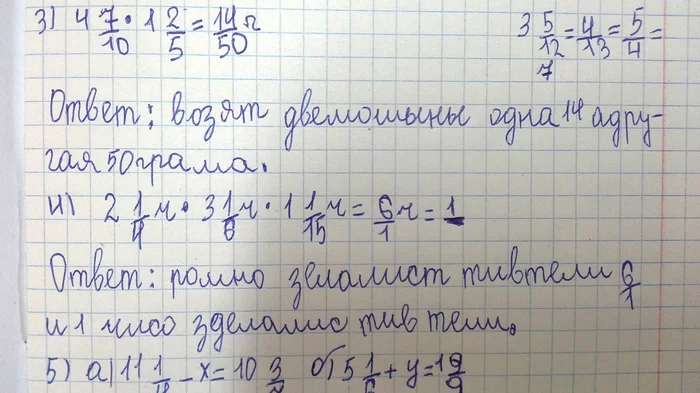 3) 4 7/10 · 1 2/5 = 14/50 п
3 5/12 = 4/13 = 5/4 =
7
Ответ: возят двемошыны одна 14 адру-
гая 50 грама.
4) 2 1/4 ч · 3 1/6 ч · 1 1/15 ч = 6/1 ч = 1
Ответ: ромно зделалист тивтели 6/1
и 1 чисо зделалис тив тели.
5) а) 11 1/ - х = 10 3/ б) 5 1/6 + у = 19/9